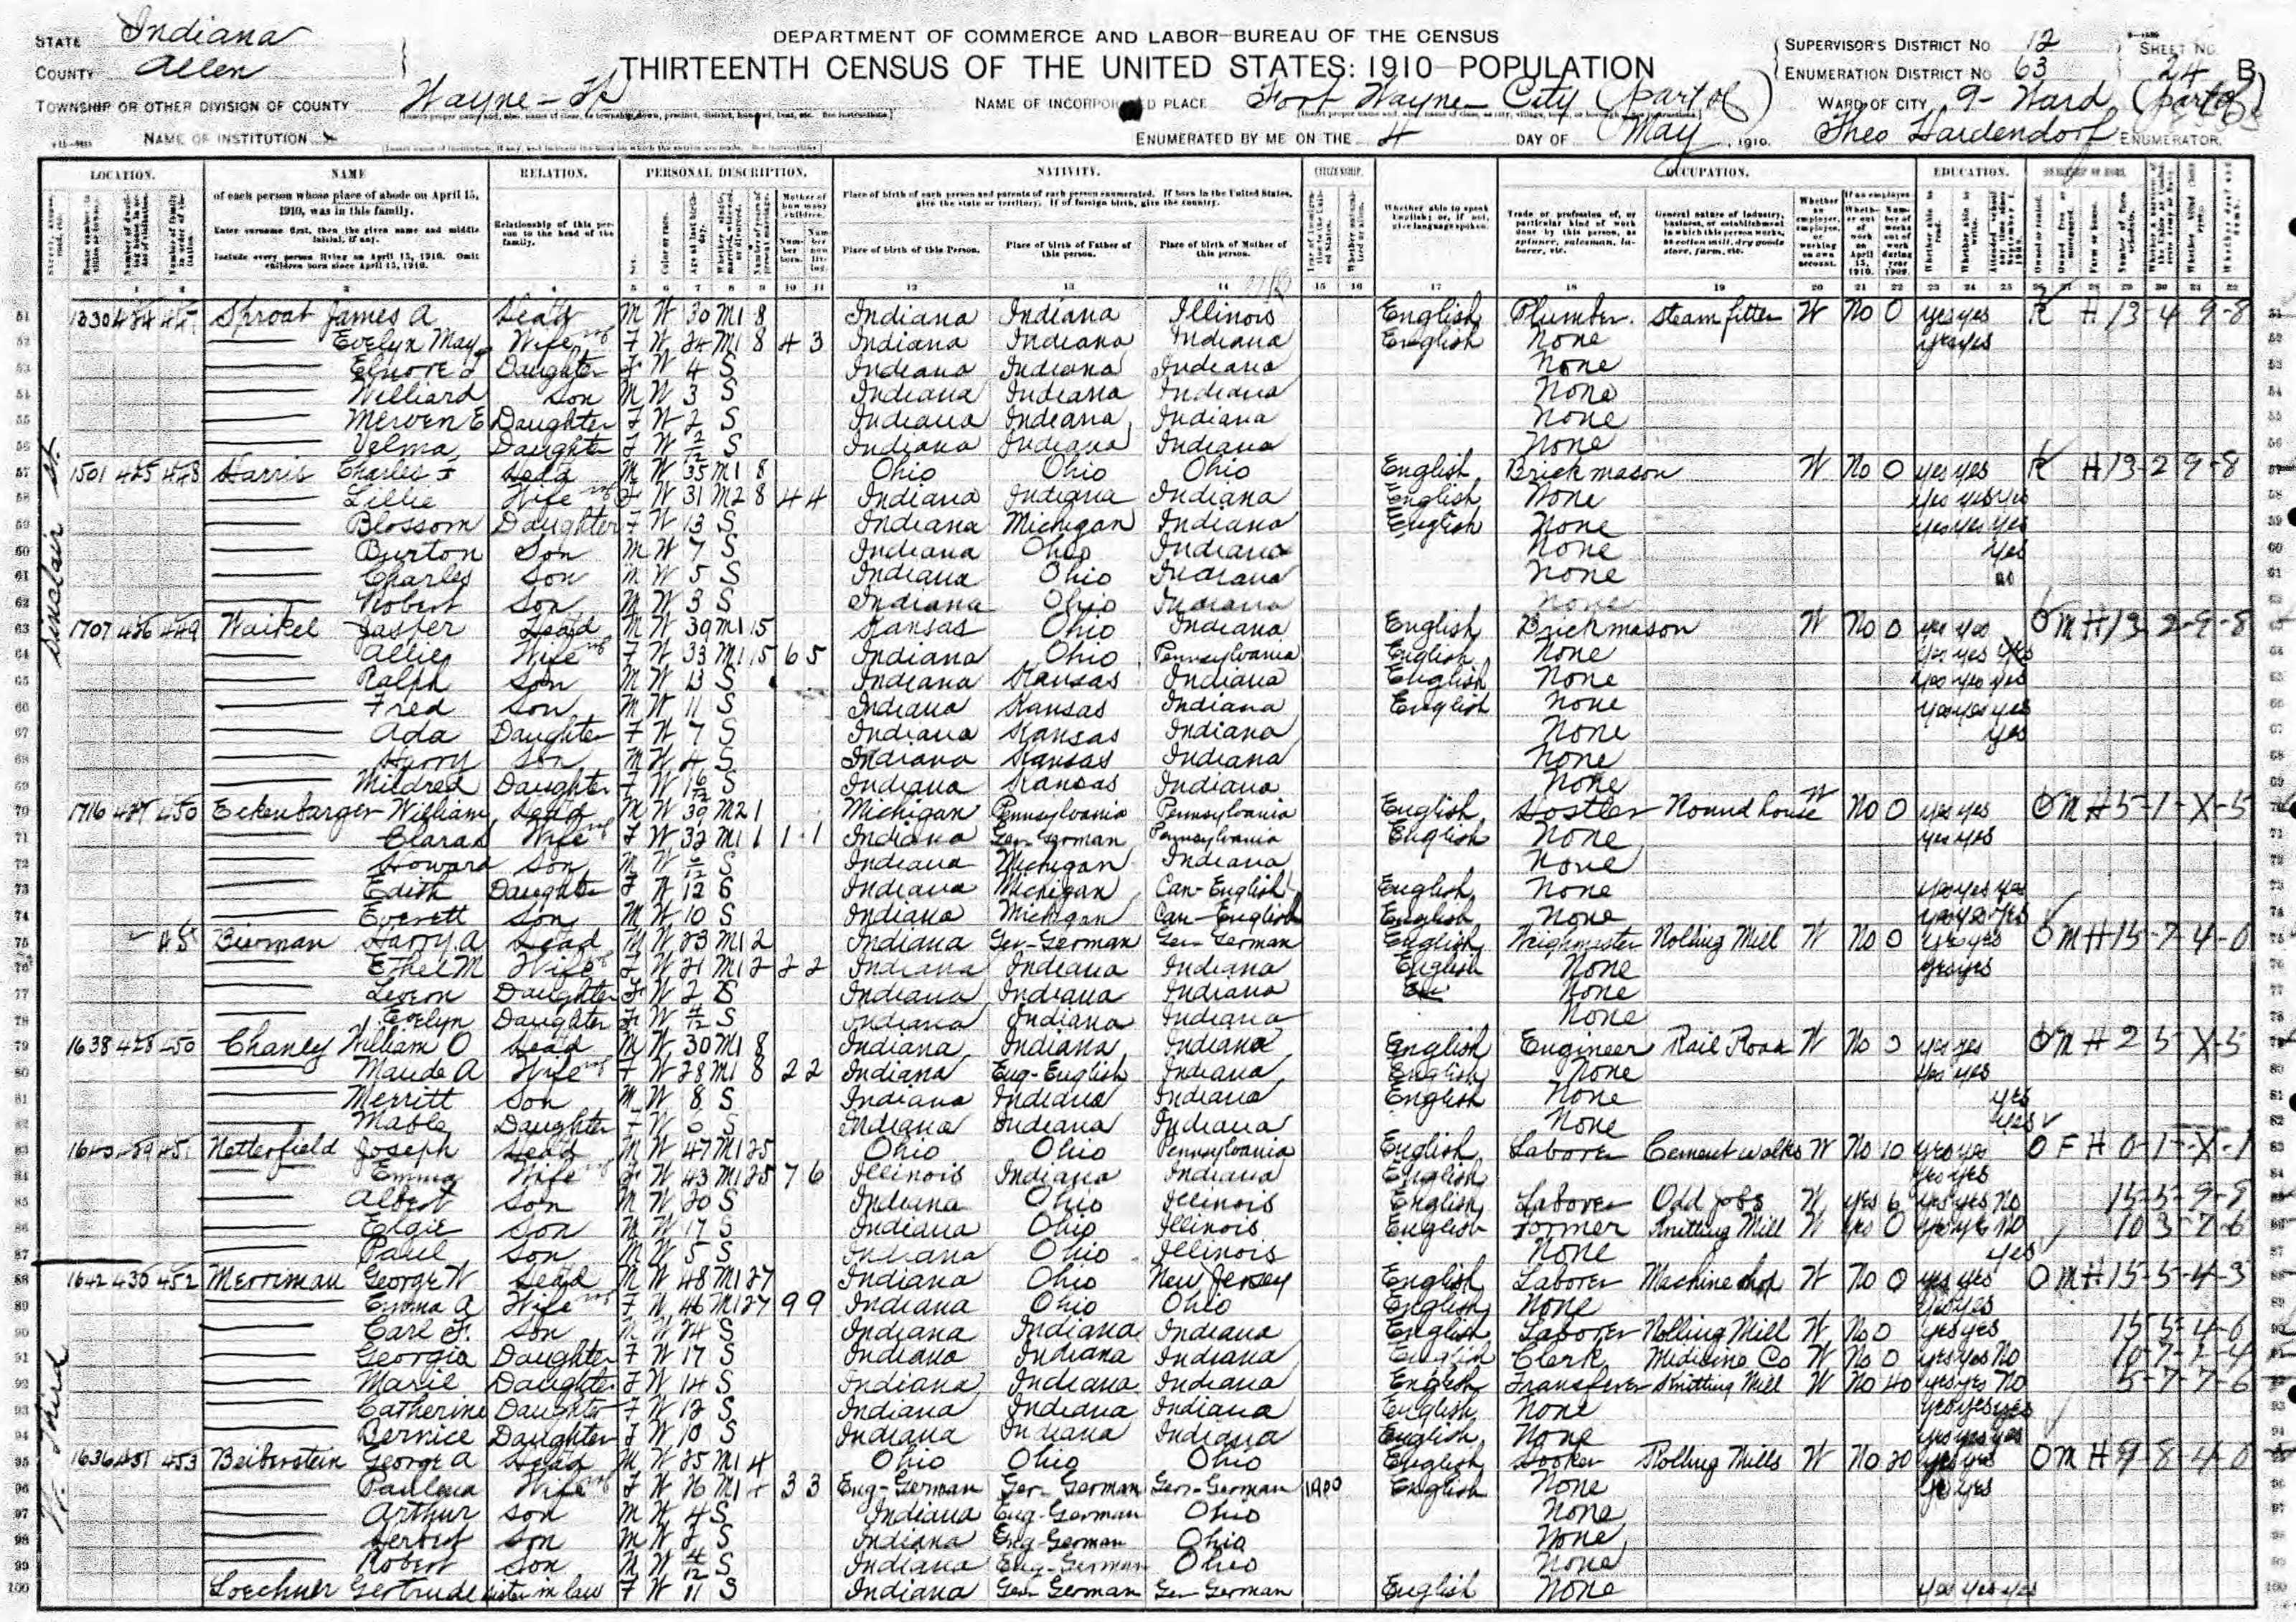 STATE Indiana
COUNTY Allen
DEPARTMENT OF COMMERCE AND LABOR—BUREAU OF THE CENSUS
THIRTEENTH CENSUS OF THE UNITED STATES: 1910—POPULATION
SUPERVISOR'S DISTRICT NO. 12
ENUMERATION DISTRICT NO. 63
SHEET NO. 24 B
TOWNSHIP OR OTHER DIVISION OF COUNTY Wayne-Tp
NAME OF INCORPORATED PLACE Fort Wayne City (part of)
WARD OF CITY 9-Ward (part of)
NAME OF INSTITUTION X
ENUMERATED BY ME ON THE 4 DAY OF May, 1910. Theo Hardendorf ENUMERATOR.
LOCATION. NAME RELATION. PERSONAL DESCRIPTION. NATIVITY. CITIZENSHIP. OCCUPATION. EDUCATION. OWNERSHIP OF HOME.
of each person whose place of abode on April 15, 1910, was in this family.
Enter surname first, then the given name and middle initial, if any.
Include every person living on April 15, 1910. Omit children born since April 15, 1910.
Relationship of this person to the head of the family.
Place of birth of each person and parents of each person enumerated. If born in the United States, give the state or territory. If of foreign birth, give the country.
Place of birth of this Person. Place of birth of Father of this person. Place of birth of Mother of this person.
Whether able to speak English; or, if not, give language spoken.
Trade or profession of, or particular kind of work done by this person, as spinner, salesman, laborer, etc.
General nature of industry, business, or establishment in which this person works, as cotton mill, dry goods store, farm, etc.
Sinclair St.
51 1330 424 447 Sproat James A Head M W 30 M1 8 Indiana Indiana Illinois English Plumber Steam fitter W No 0 yes yes R H 13-4 9-8
52 Evelyn May Wife F W 24 M1 8 4 3 Indiana Indiana Indiana English None yes yes
53 Daughter F W 4 S Indiana Indiana Indiana None
54 Williard Son M W 3 S Indiana Indiana Indiana None
55 Merven E Daughter F W 2 S Indiana Indiana Indiana None
56 Velma Daughter F W S Indiana Indiana Indiana None
57 1501 425 448 Harris Charles F Head M W 35 M1 8 Ohio Ohio Ohio English Brick mason W No 0 yes yes R H 13-2 9-8
58 Lillie Wife F W 31 M2 8 4 4 Indiana Indiana Indiana English None yes yes yes
59 Blossom Daughter F W 13 S Indiana Michigan Indiana English None yes yes yes
60 Burton Son M W 7 S Indiana Ohio Indiana None yes
61 Charles Son M W 5 S Indiana Ohio Indiana None no
62 Robert Son M W 3 S Indiana Ohio Indiana None
63 1707 426 449 Waikel Jasper Head M W 39 M1 15 Kansas Ohio Indiana English Brick mason W No 0 yes yes O M H 13-2-9-8
64 Allie Wife F W 33 M1 15 6 5 Indiana Ohio Pennsylvania English None yes yes yes
65 Ralph Son M W 13 S Indiana Kansas Indiana English None yes yes yes
66 Fred Son M W 11 S Indiana Kansas Indiana English None yes yes yes
67 Ada Daughter F W 7 S Indiana Kansas Indiana None yes
68 Harry Son M W 4 S Indiana Kansas Indiana None
69 Mildred Daughter F W S Indiana Kansas Indiana None
70 1716 427 450 Eckenbarger William Head M W 39 M2 1 Michigan Pennsylvania Pennsylvania English Hostler Round house W No 0 yes yes O M H 5-1-X-5
71 Clara Wife F W 32 M1 1 1 1 Indiana Ger-German Pennsylvania English None yes yes
72 Howard Son M W 6/12 S Indiana Michigan Indiana None
73 Edith Daughter F W 12 S Indiana Michigan Can-English English None yes yes yes
74 Everett Son M W 10 S Indiana Michigan Can-English English None yes yes yes
75 Bierman Harry A Head M W 23 M1 2 Indiana Ger-German Ger-German English Weighmaster Rolling Mill W No 0 yes yes O M H 15-7-4-0
76 Ethel M Wife F W 21 M1 2 2 2 Indiana Indiana Indiana English None yes yes
77 Daughter F W 2 S Indiana Indiana Indiana None
78 Evelyn Daughter F W 4/12 S Indiana Indiana Indiana None
79 1638 428 450 Chaney William O Head M W 30 M1 8 Indiana Indiana Indiana English Engineer Rail Road W No 0 yes yes O M H 2 5-X-5
80 Maude A Wife F W 28 M1 8 2 2 Indiana Eng-English Indiana English None yes yes
81 Merritt Son M W 8 S Indiana Indiana Indiana English None yes
82 Mable Daughter F W 6 S Indiana Indiana Indiana None yes
83 1640 429 451 Netterfield Joseph Head M W 47 M1 25 Ohio Ohio Pennsylvania English Laborer Cement walks W No 10 yes yes O F H 0-1-X-1
84 Emma Wife F W 43 M1 25 7 6 Illinois Indiana Indiana English yes yes
85 Albert Son M W 20 S Indiana Ohio Illinois English Laborer Odd jobs W yes 6 yes yes No 15-5-9-8
86 Elgie Son M W 17 S Indiana Ohio Illinois English Former Knitting Mill W yes 0 yes yes No 10 3-7-6
87 Paul Son M W 5 S Indiana Ohio Illinois None yes
W. Third
88 1642 430 452 Merriman George W Head M W 48 M1 27 Indiana Ohio New Jersey English Laborer Machine shop W No 0 yes yes O M H 15-5-4-3
89 Emma A Wife F W 46 M1 27 9 9 Indiana Ohio Ohio English None yes yes
90 Carl F. Son M W 24 S Indiana Indiana Indiana English Laborer Rolling Mill W No 0 yes yes 15-5-4-0
91 Georgia Daughter F W 17 S Indiana Indiana Indiana English Clerk Medicine Co W No 0 yes yes No
92 Marie Daughter F W 14 S Indiana Indiana Indiana English Transferer Knitting Mill W No 40 yes yes No 5-7-7-6
93 Catherine Daughter F W 12 S Indiana Indiana Indiana English None yes yes yes
94 Bernice Daughter F W 10 S Indiana Indiana Indiana English None yes yes yes
95 1636 431 453 Beiberstein George A Head M W 25 M1 4 Ohio Ohio Ohio English Rolling Mills W No 20 yes yes O M H 9-8-4-0
96 Paulena Wife F W 26 M1 4 3 3 Eng-German Ger-German Ger-German 1900 English None yes yes
97 Arthur Son M W 4 S Indiana Eng-German Ohio None
98 Son M W 2 S Indiana Eng-German Ohio None
99 Robert Son M W 4/12 S Indiana Eng-German Ohio None
100 Loechner Gertrude sister in law F W 11 S Indiana Ger-German Ger-German English None yes yes yes